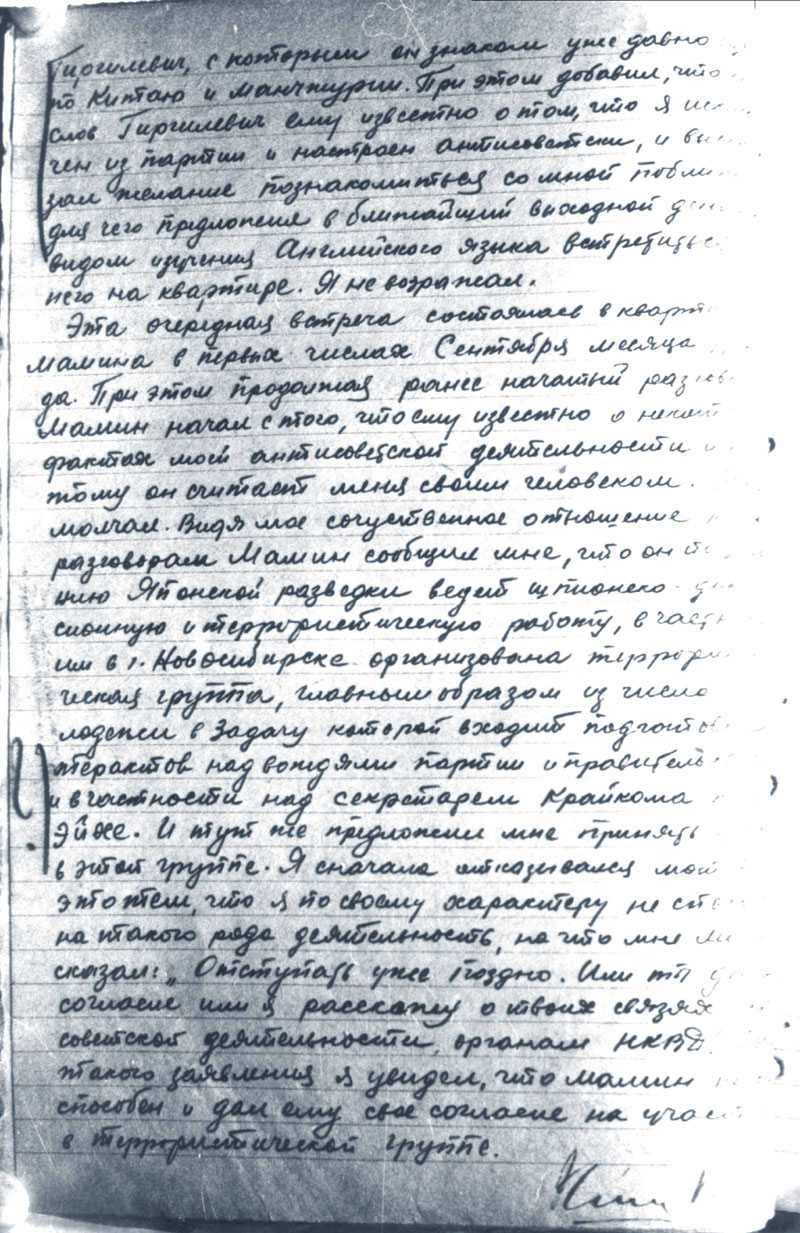 Гиргилевич, с которым он знаком уже давно
по Китаю и Манчжурии. При этом добавил, что
слов Гиргилевич ему известно о том, что я
чен из партии и настроен антисоветски, и
зал желание познакомиться со мной
для чего предложил в ближайший выходной
видом изучения Английского языка
него на квартире. Я не возражал.
Эта очередная встреча состоялась в
Мамина в первых числах Сентября месяца
да. При этом продолжая ранее начатый
Мамин начал с того, что ему известно о
фактах моей антисоветской деятельности и
тому он считает меня своим человеком.
молчал. Видя мое сочуственное отношение
разговорам Мамин сообщил мне, что он
нию Японской разведки ведет шпионско-
сионную и террористическую работу, в
им в г. Новосибирске организована
ческая группа, главным образом из числа
лодежи в задачу которой входит
терактов над вождями партии и
и в частности над секретарем Крайкома
Эйхе. И тут же предложил мне принять
в этой группе. Я сначала отказывался
это тем, что я по своему характеру не
на такого рода деятельность, на что мне
сказал: „Отступать уже поздно. Или ты
согласие или я расскажу о твоих связях
советской деятельности, органам НКВД
такого заявления я увидел, что Мамин
способен и дал ему свое согласие на
в террористической группе.